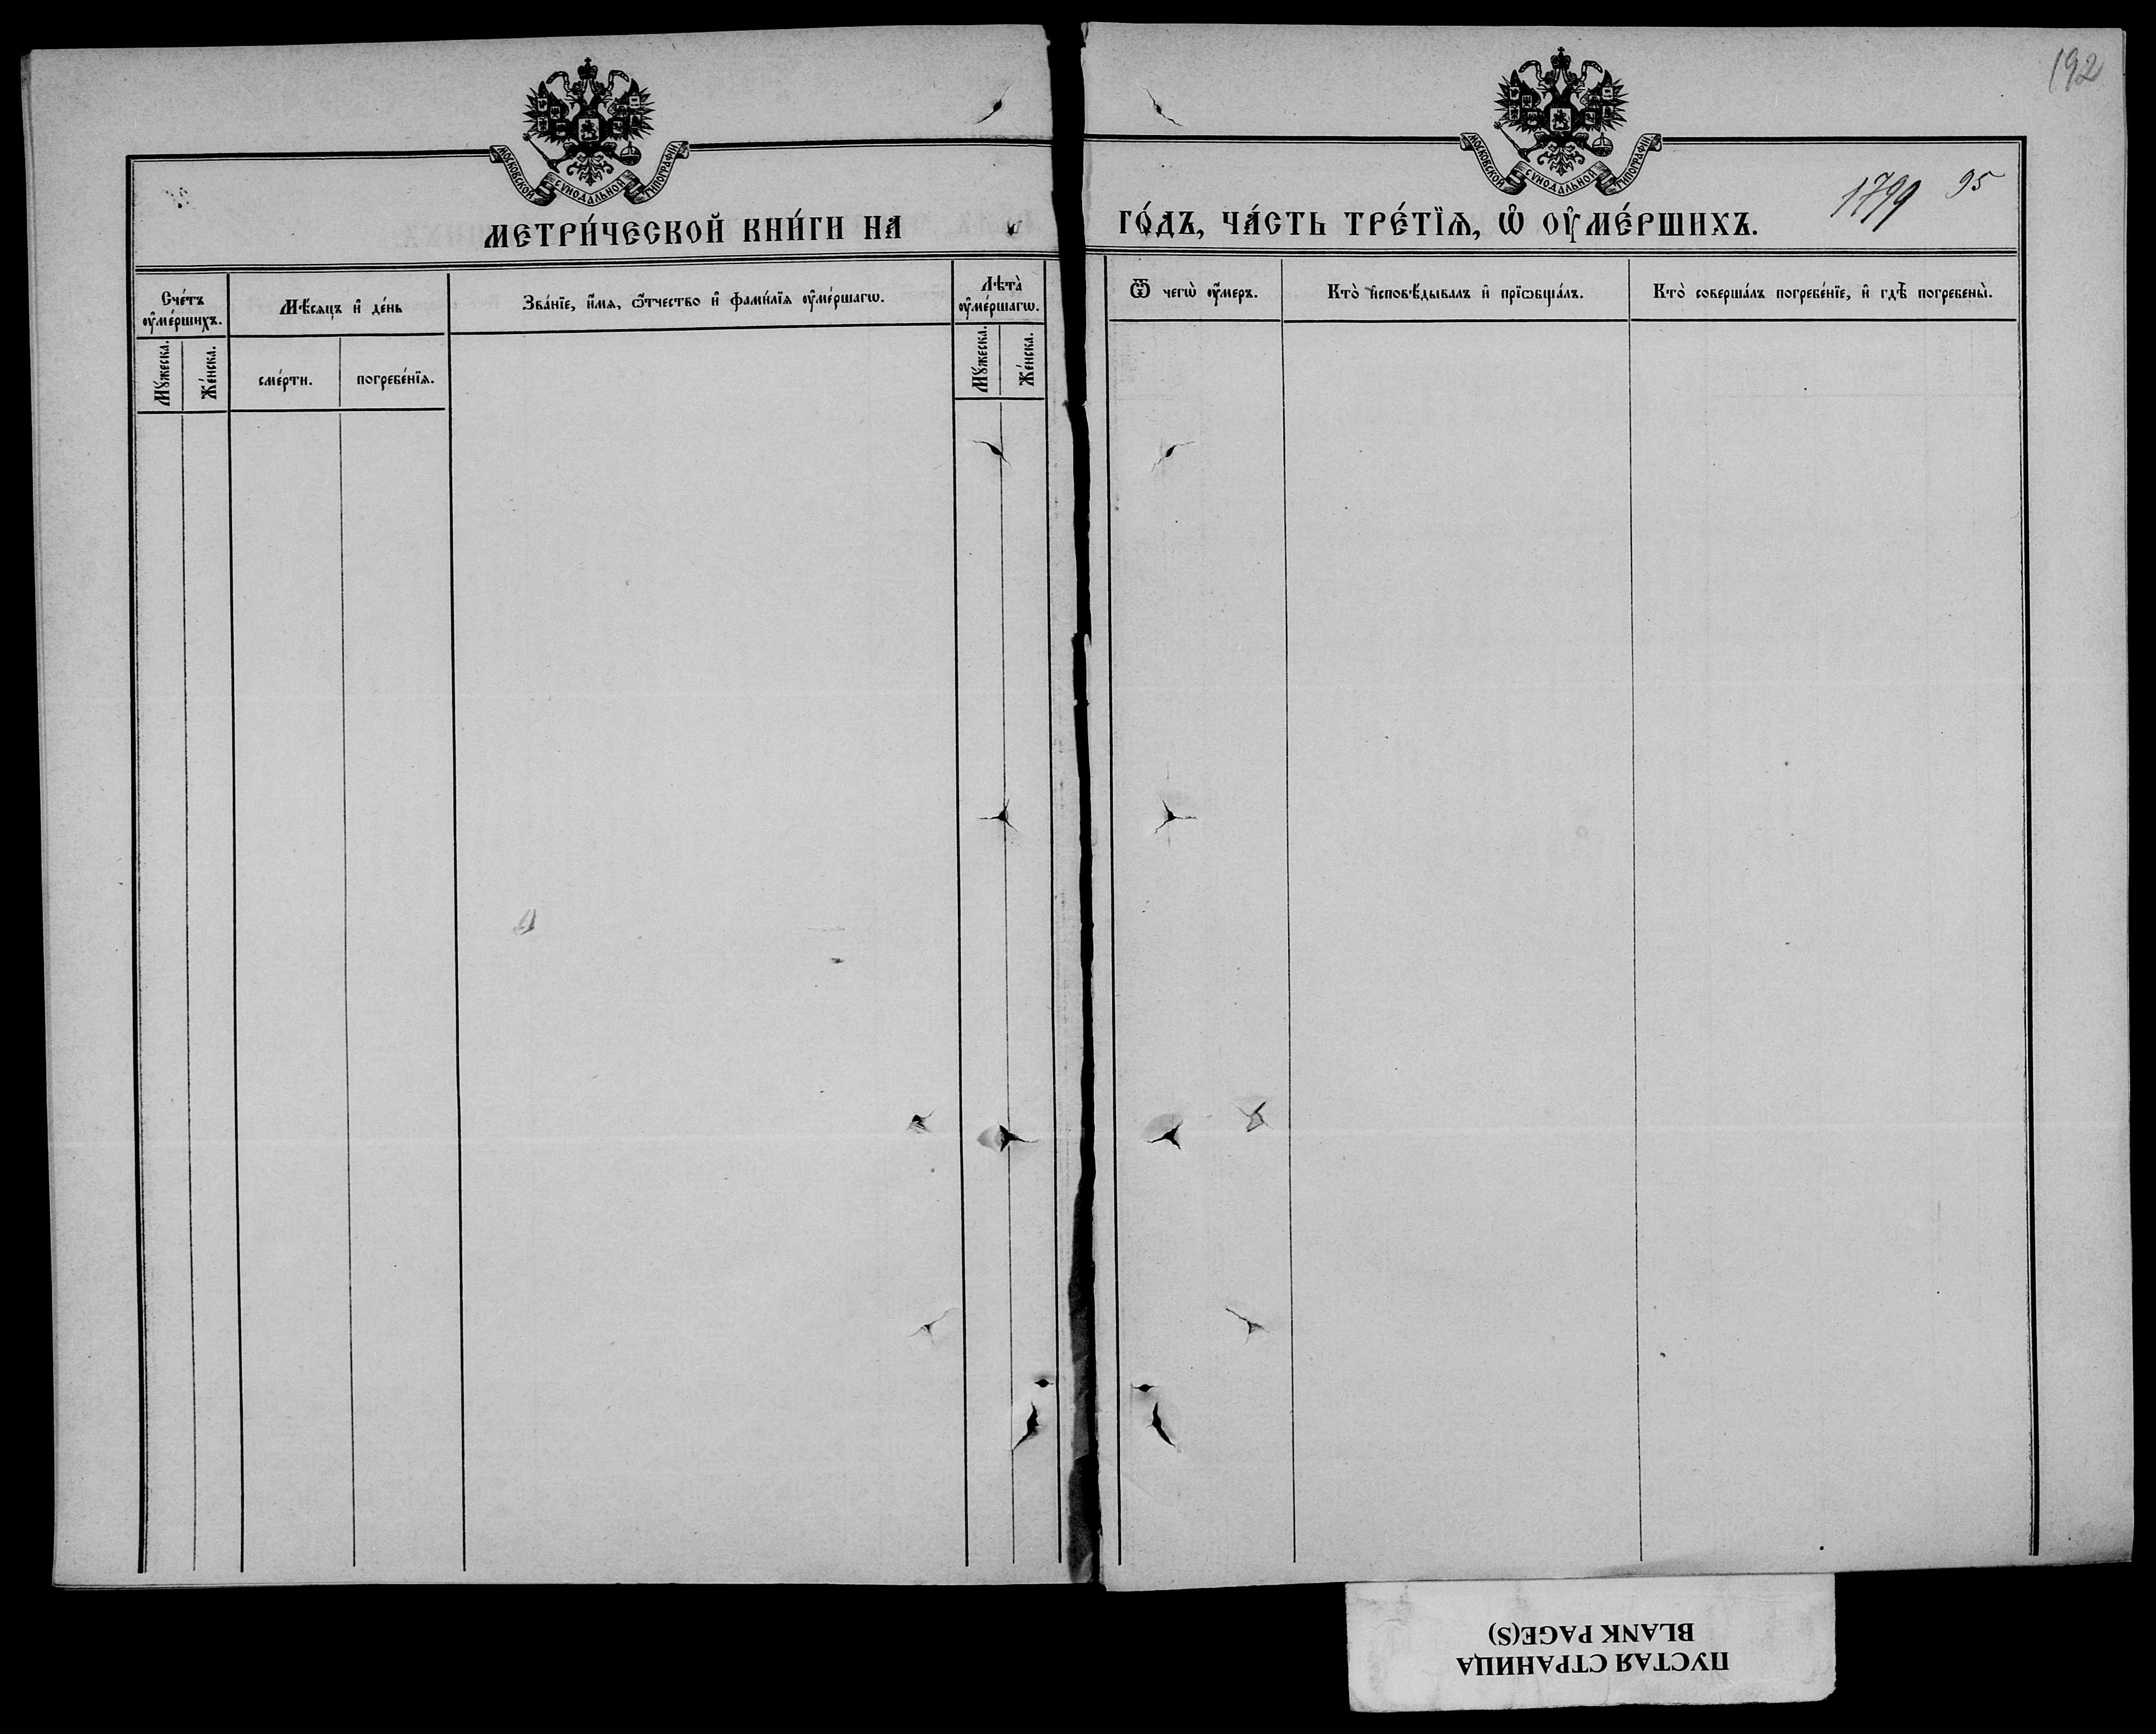 192
МОСКОВСКОЙ СѴНОДАЛЬНОЙ ТИПОГРАФІИ
МОСКОВСКОЙ СѴНОДАЛЬНОЙ ТИПОГРАФІИ
1799 95
МЕТРИ́ЧЕСКОЙ КНИ́ГИ НА ГО́ДЪ, ЧА́СТЬ ТРЕ́ТЇѦ, Ѡ҆ ОУ҆МЕ́РШИХЪ.
Сче́тъ оу҆ме́ршихъ.
Мѣ́сяцъ и҆ де́нь
Зва́нїе, и҆́мѧ, ѻ҆́тчество и҆ фами́лїѧ оу҆ме́ршагѡ.
Лѣта̀ оу҆ме́ршагѡ.
Ѿ чегѡ̀ оу҆́меръ.
Кто̀ и҆сповѣ́дывалъ и҆ прїѡбща́лъ.
Кто̀ соверша́лъ погребе́нїе, и҆ гдѣ̀ погребены̀.
Мꙋ́жеска.
Же́нска.
сме́рти.
погребе́нїѧ.
Мꙋ́жеска.
Же́нска.
ПУСТАЯ СТРАНИЦА
BLANK PAGE(S)